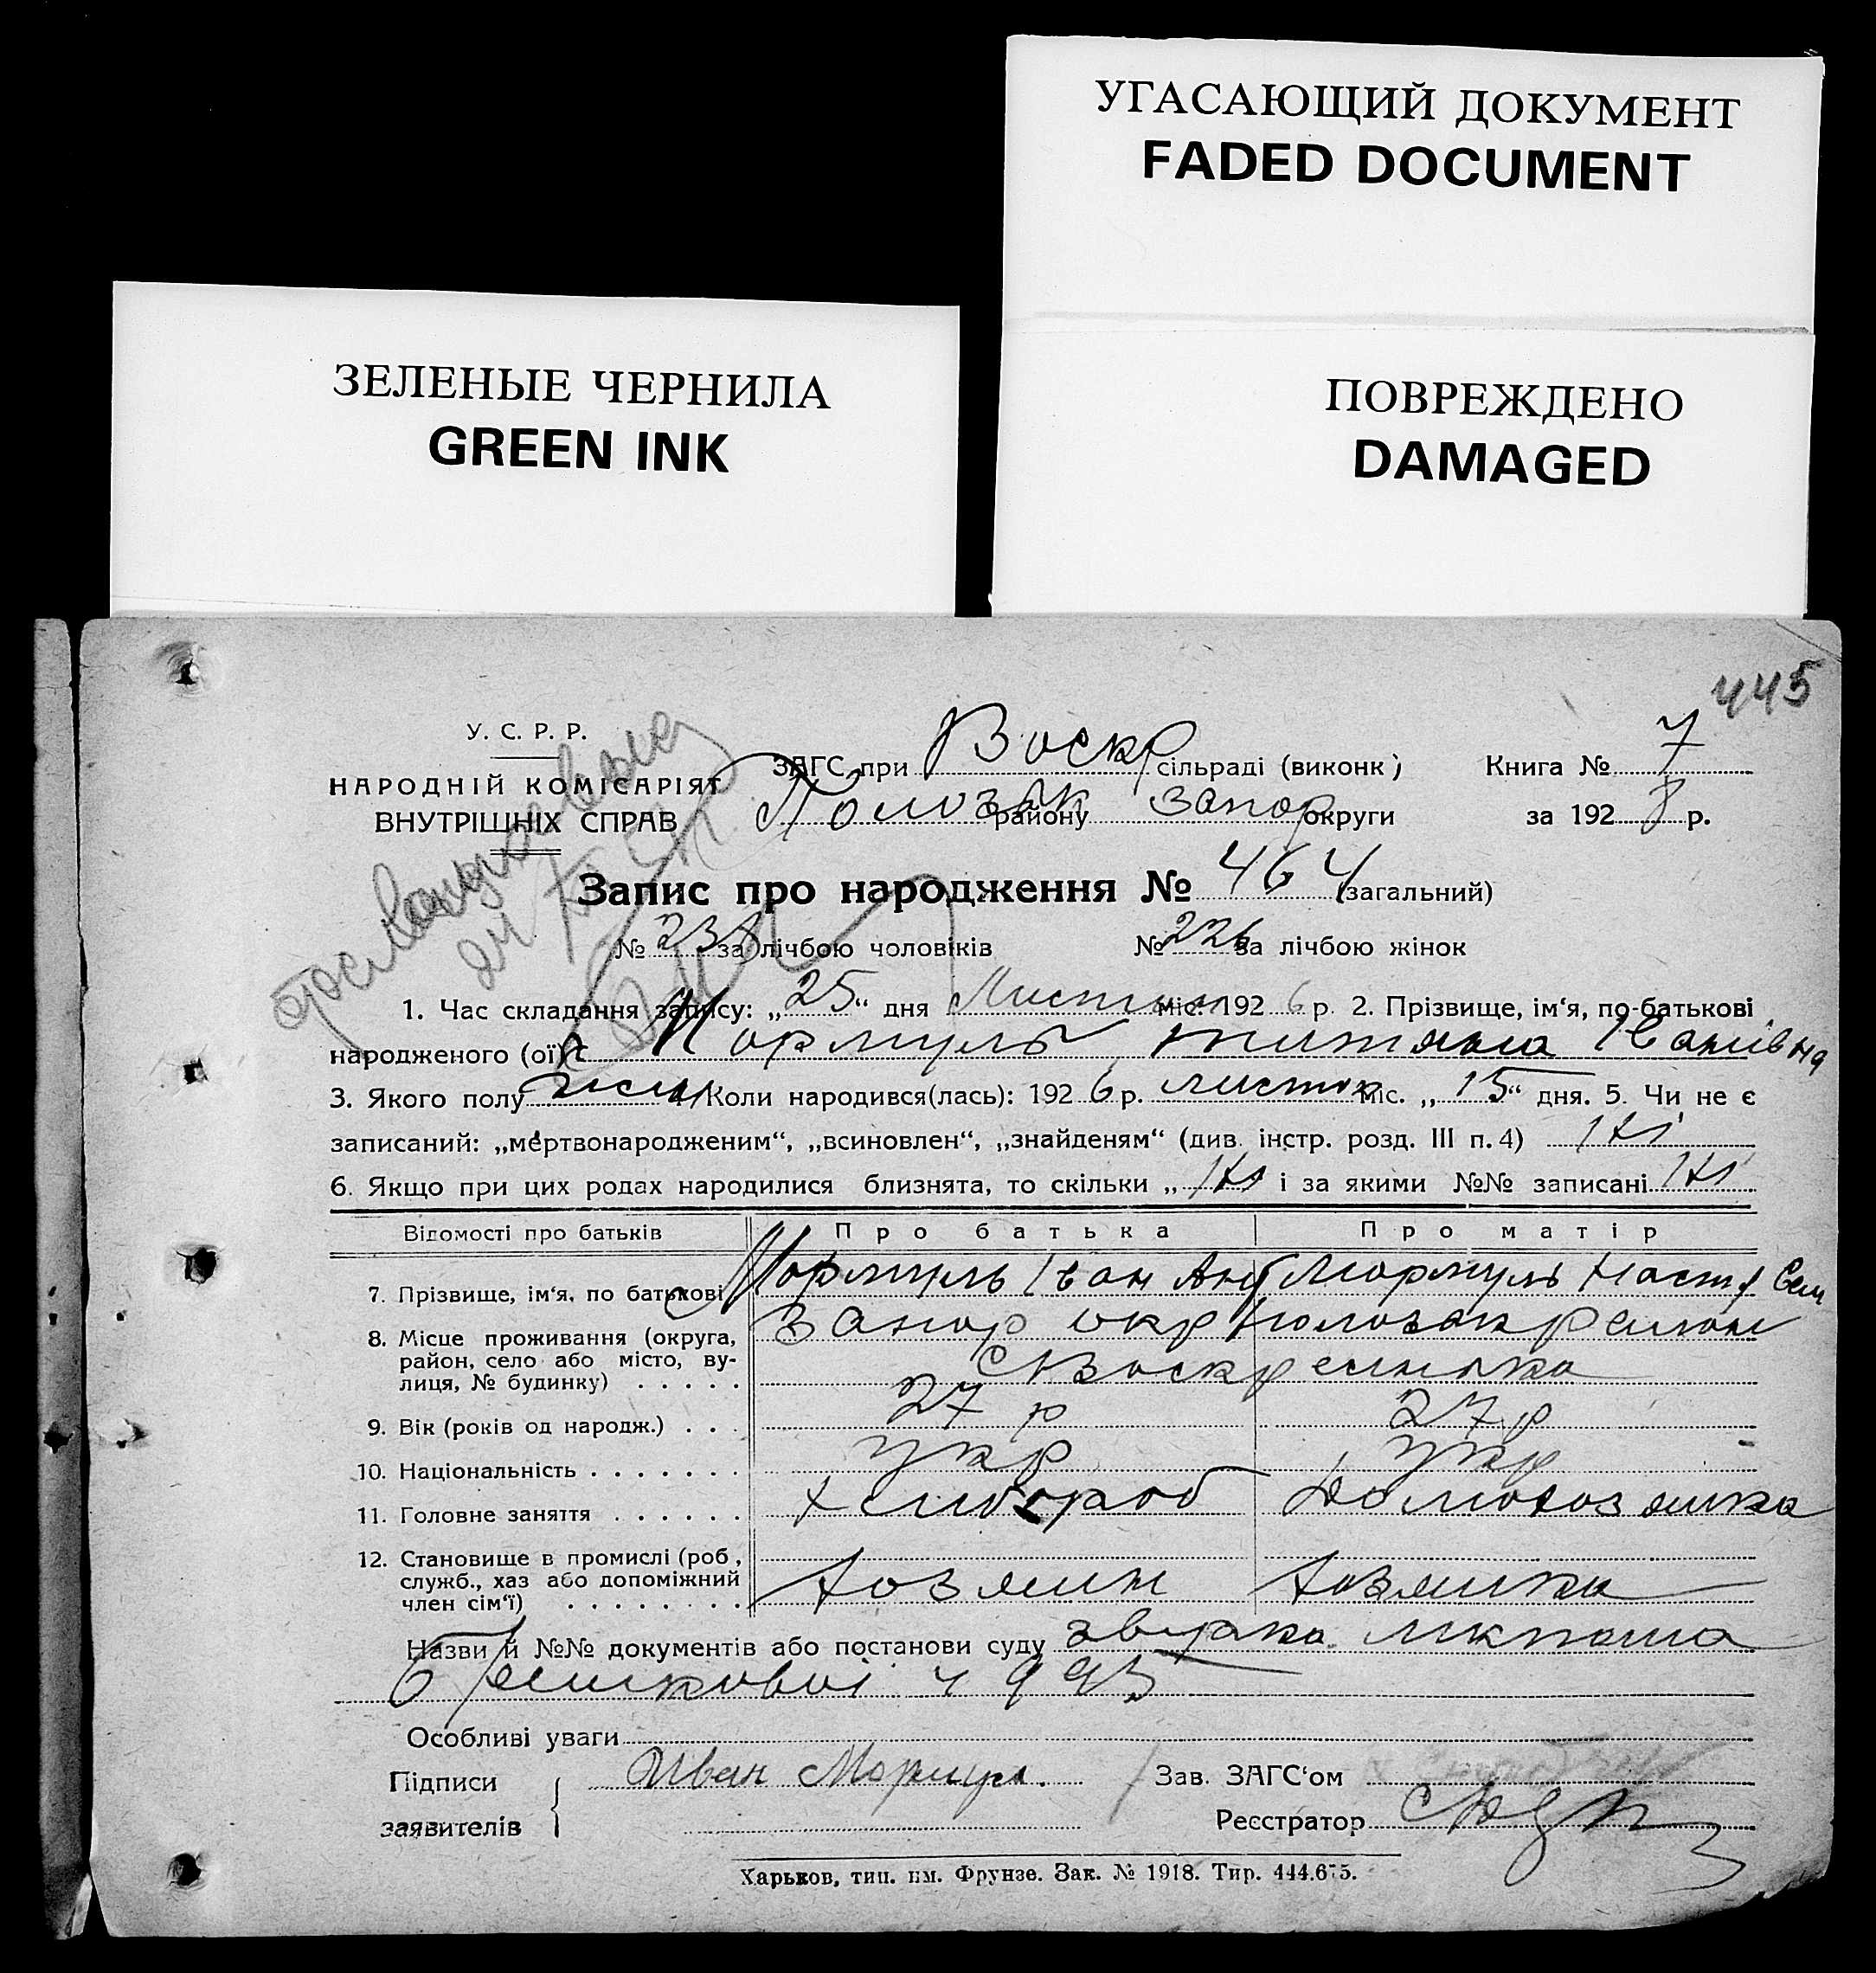 УГАСАЮЩИЙ ДОКУМЕНТ
FADED DOCUMENT
ЗЕЛЕНЫЕ ЧЕРНИЛА
GREEN INK
ПОВРЕЖДЕНО
DAMAGED
445
У. С. Р. Р.
НАРОДНІЙ КОМІСАРІЯТ
ВНУТРІШНІХ СПРАВ
ЗАГС при Воскр сільраді (виконк) Книга № 7
Пологівск району Запор округи за 192 р.
Запис про народження № 464 (загальний)
№ 238 за лічбою чоловіків № 226 за лічбою жінок
1. Час складання запису: „25“ дня Листоп міс. 192 6 р. 2. Прізвище, ім'я, по-батькові
народженого (ої) Мормуль Титяна Іванівна
3. Якого полу жін 4. Коли народився(лась): 192 6 р. листоп міс. „15“ дня. 5. Чи не є
записаний: „мертвонародженим“, „всиновлен“, „знайденям“ (див. інстр. розд. III п. 4) Ні
6. Якщо при цих родах народилися близнята, то скільки „ Ні і за якими №№ записані Ні
Відомості про батьків Про батька Про матір
7. Прізвище, ім'я, по батькові Мормуль Іван Анд Мормуль Наст Сем
8. Місце проживання (округа, Запор окр
район, село або місто, ву-
лиця, № будинку) с Воскресенька
9. Вік (років од народж.) 27 р 27 р
10. Національність укр укр
11. Головне заняття хлибороб Домохозяика
12. Становище в промислі (роб.,
служб., хаз. або допоміжний
член сім'ї) хозяин хозяика
Назви й №№ документів або постанови суду
Особливі уваги
Підписи Иван Мормул. Зав. ЗАГС'ом
заявителів Реєстратор
Харьков, тип. им. Фрунзе. Зак. № 1918. Тир. 444.675.